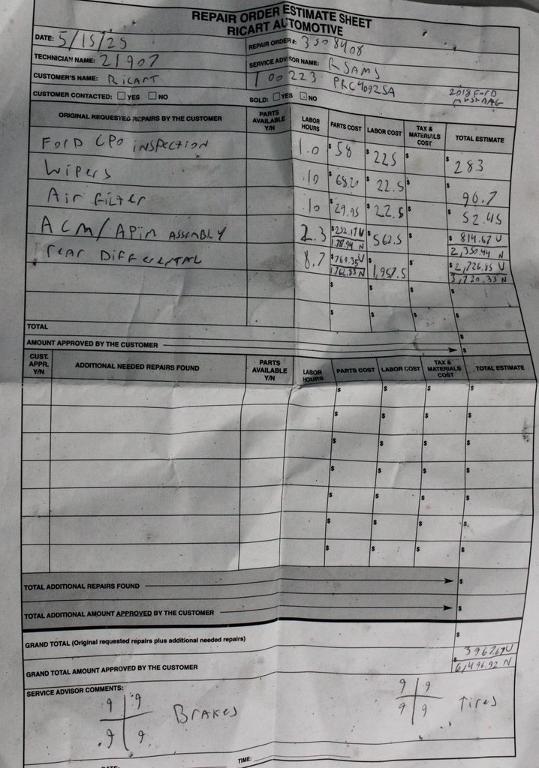 REPAIR ORDER ESTIMATE SHEET
RICART AUTOMOTIVE
DATE: 5/15/25 REPAIR ORDER #: 3508408
TECHNICIAN NAME: 21907 SERVICE ADVISOR NAME: RSAMS
CUSTOMER'S NAME: RICART 100223 PRC40925A
CUSTOMER CONTACTED: YES NO SOLD: YES NO 2018 FORD MUSTANG
ORIGINAL REQUESTED REPAIRS BY THE CUSTOMER PARTS AVAILABLE Y/N LABOR HOURS PARTS COST LABOR COST TAX & MATERIALS COST TOTAL ESTIMATE
FORD CPO INSPECTION 1.0 $58 $225 $ $283
WIPERS .10 $68.20 $22.5 $ $90.7
AIR FILTER .10 $29.95 $22.5 $ $52.45
ACM/APIM ASSEMBLY 2.3 $562.5 $ $814.67 U
2,350.44 N
REAR DIFFERENTIAL 8.7 $769.35 U $1,957.5 $ $2,726.85 U
1762.83 N 3,720.33 N
$ $ $ $
$ $ $ $
TOTAL $
AMOUNT APPROVED BY THE CUSTOMER $
CUST. APPR. Y/N ADDITIONAL NEEDED REPAIRS FOUND PARTS AVAILABLE Y/N LABOR HOURS PARTS COST LABOR COST TAX & MATERIALS COST TOTAL ESTIMATE
$ $ $ $
$ $ $ $
$ $ $ $
$ $ $ $
$ $ $ $
$ $ $ $
$ $ $ $
TOTAL ADDITIONAL REPAIRS FOUND $
TOTAL ADDITIONAL AMOUNT APPROVED BY THE CUSTOMER $
GRAND TOTAL (Original requested repairs plus additional needed repairs) $
3967.67 U
GRAND TOTAL AMOUNT APPROVED BY THE CUSTOMER $6,496.92 N
SERVICE ADVISOR COMMENTS:
9 9 BRAKES 9 9 TIRES
9 9 9 9
DATE: TIME: